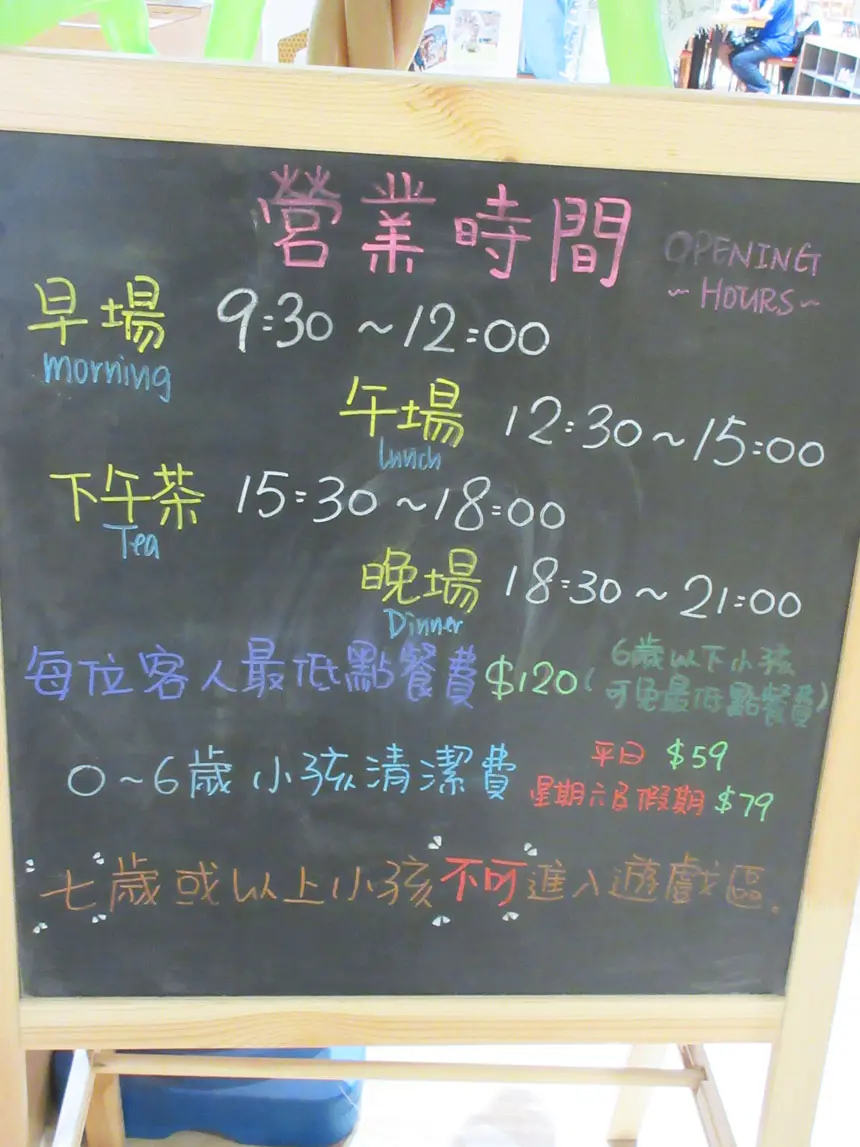 營業時間 OPENING
~ HOURS ~
早場 9:30 ~ 12:00
morning
午場 12:30 ~ 15:00
lunch
下午茶 15:30 ~ 18:00
Tea
晚場 18:30 ~ 21:00
Dinner
每位客人最低點餐費 $120 (6歲以下小孩
可免最低點餐費)
0~6歲小孩清潔費 平日 $59
星期六及假期 $79
七歲或以上小孩不可進入遊戲區.